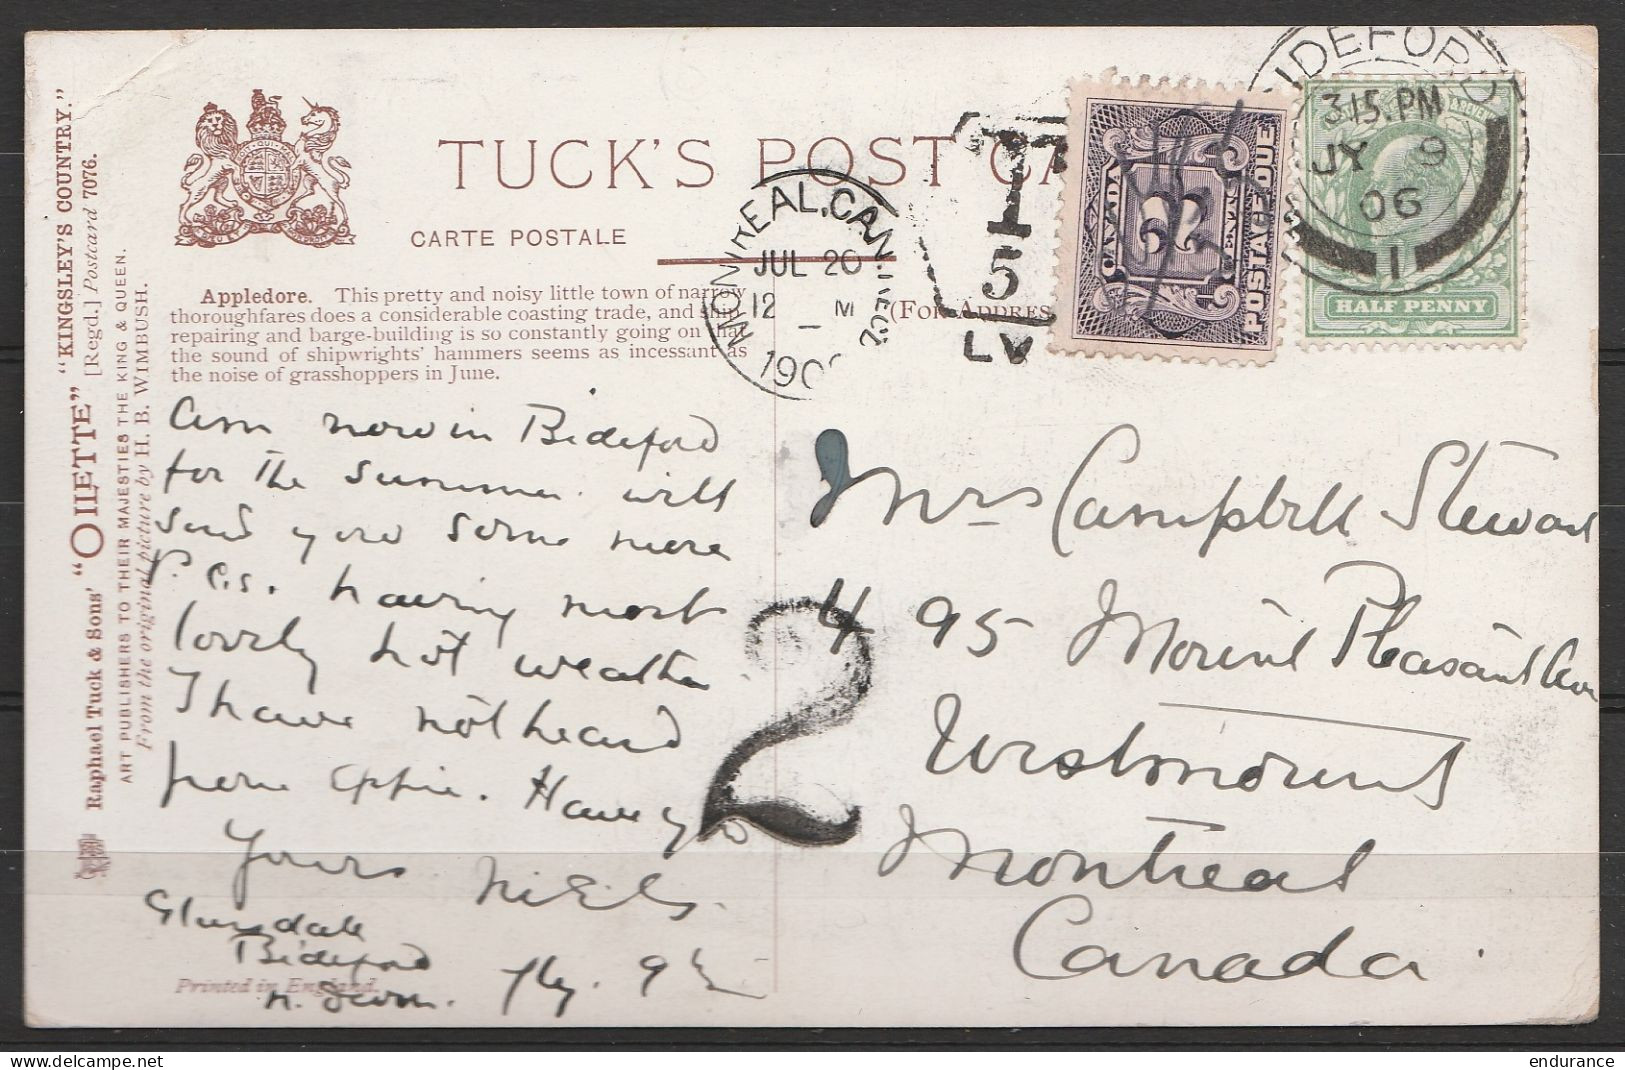 TUCK'S POST CA
CARTE POSTALE
(FOR ADDRES
Appledore. This pretty and noisy little town of narrow
thoroughfares does a considerable coasting trade, and ship-
repairing and barge-building is so constantly going on that
the sound of shipwrights' hammers seems as incessant as
the noise of grasshoppers in June.
"KINGSLEY'S COUNTRY."
[Regd.] Postcard 7076.
Raphael Tuck & Sons' "OILETTE"
ART PUBLISHERS TO THEIR MAJESTIES THE KING & QUEEN.
From the original picture by H. B. WIMBUSH.
MONTREAL, CAN.
JUL 20
12 M
190
T
5
LV
CANADA
POSTAGE DUE
2
CENTS
IDEFORD
3.15.PM
JY 9
06
1
HALF PENNY
Am now in Bideford
for the summer. will
send you some more
P. Cs. having most
lovely hot weather.
I have not heard
from Effie. Have you
Yours
Bideford
N. Devon. 9
Printed in England.
2
Mrs Campbell Stewart
495 Mount Pleasant Ave
Westmount
Montreal
Canada.
endurance